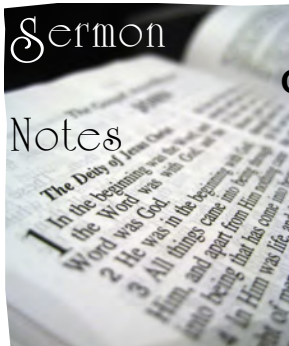 Sermon
Notes
The Deity of Jesus Christ
1 In the beginning was the
the Word was with God, and the
Word was God.
2 He was in the beginning with God.
3 All things came into being
Him, and apart from Him nothing
into being that has come
4 In Him was life, and